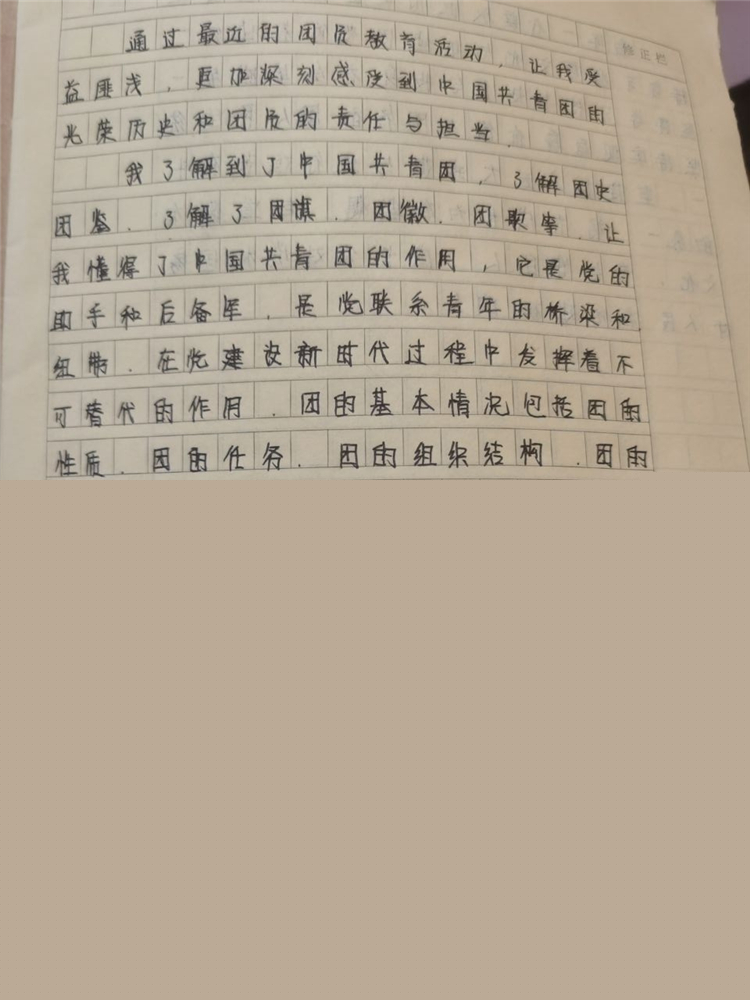 通过最近的团员教育活动，让我受
益匪浅，更加深刻感受到中国共青团的
光荣历史和团员的责任与担当．
我了解到了中国共青团，了解团史
团鉴、了解了团旗、团徽、团歌等、让
我懂得了中国共青团的作用，它是党的
助手和后备军，是党联系青年的桥梁和
纽带、在党建设新时代过程中发挥着不
可替代的作用．团的基本情况包括团的
性质、团的任务、团的组织结构、团的
修正栏